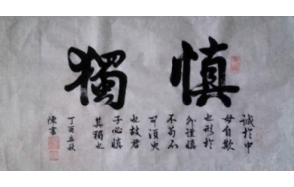 慎獨
誠於中
毋自欺
也形於
外謹慎
不苟不
可須臾
也故君
子必慎
其獨也
丁酉